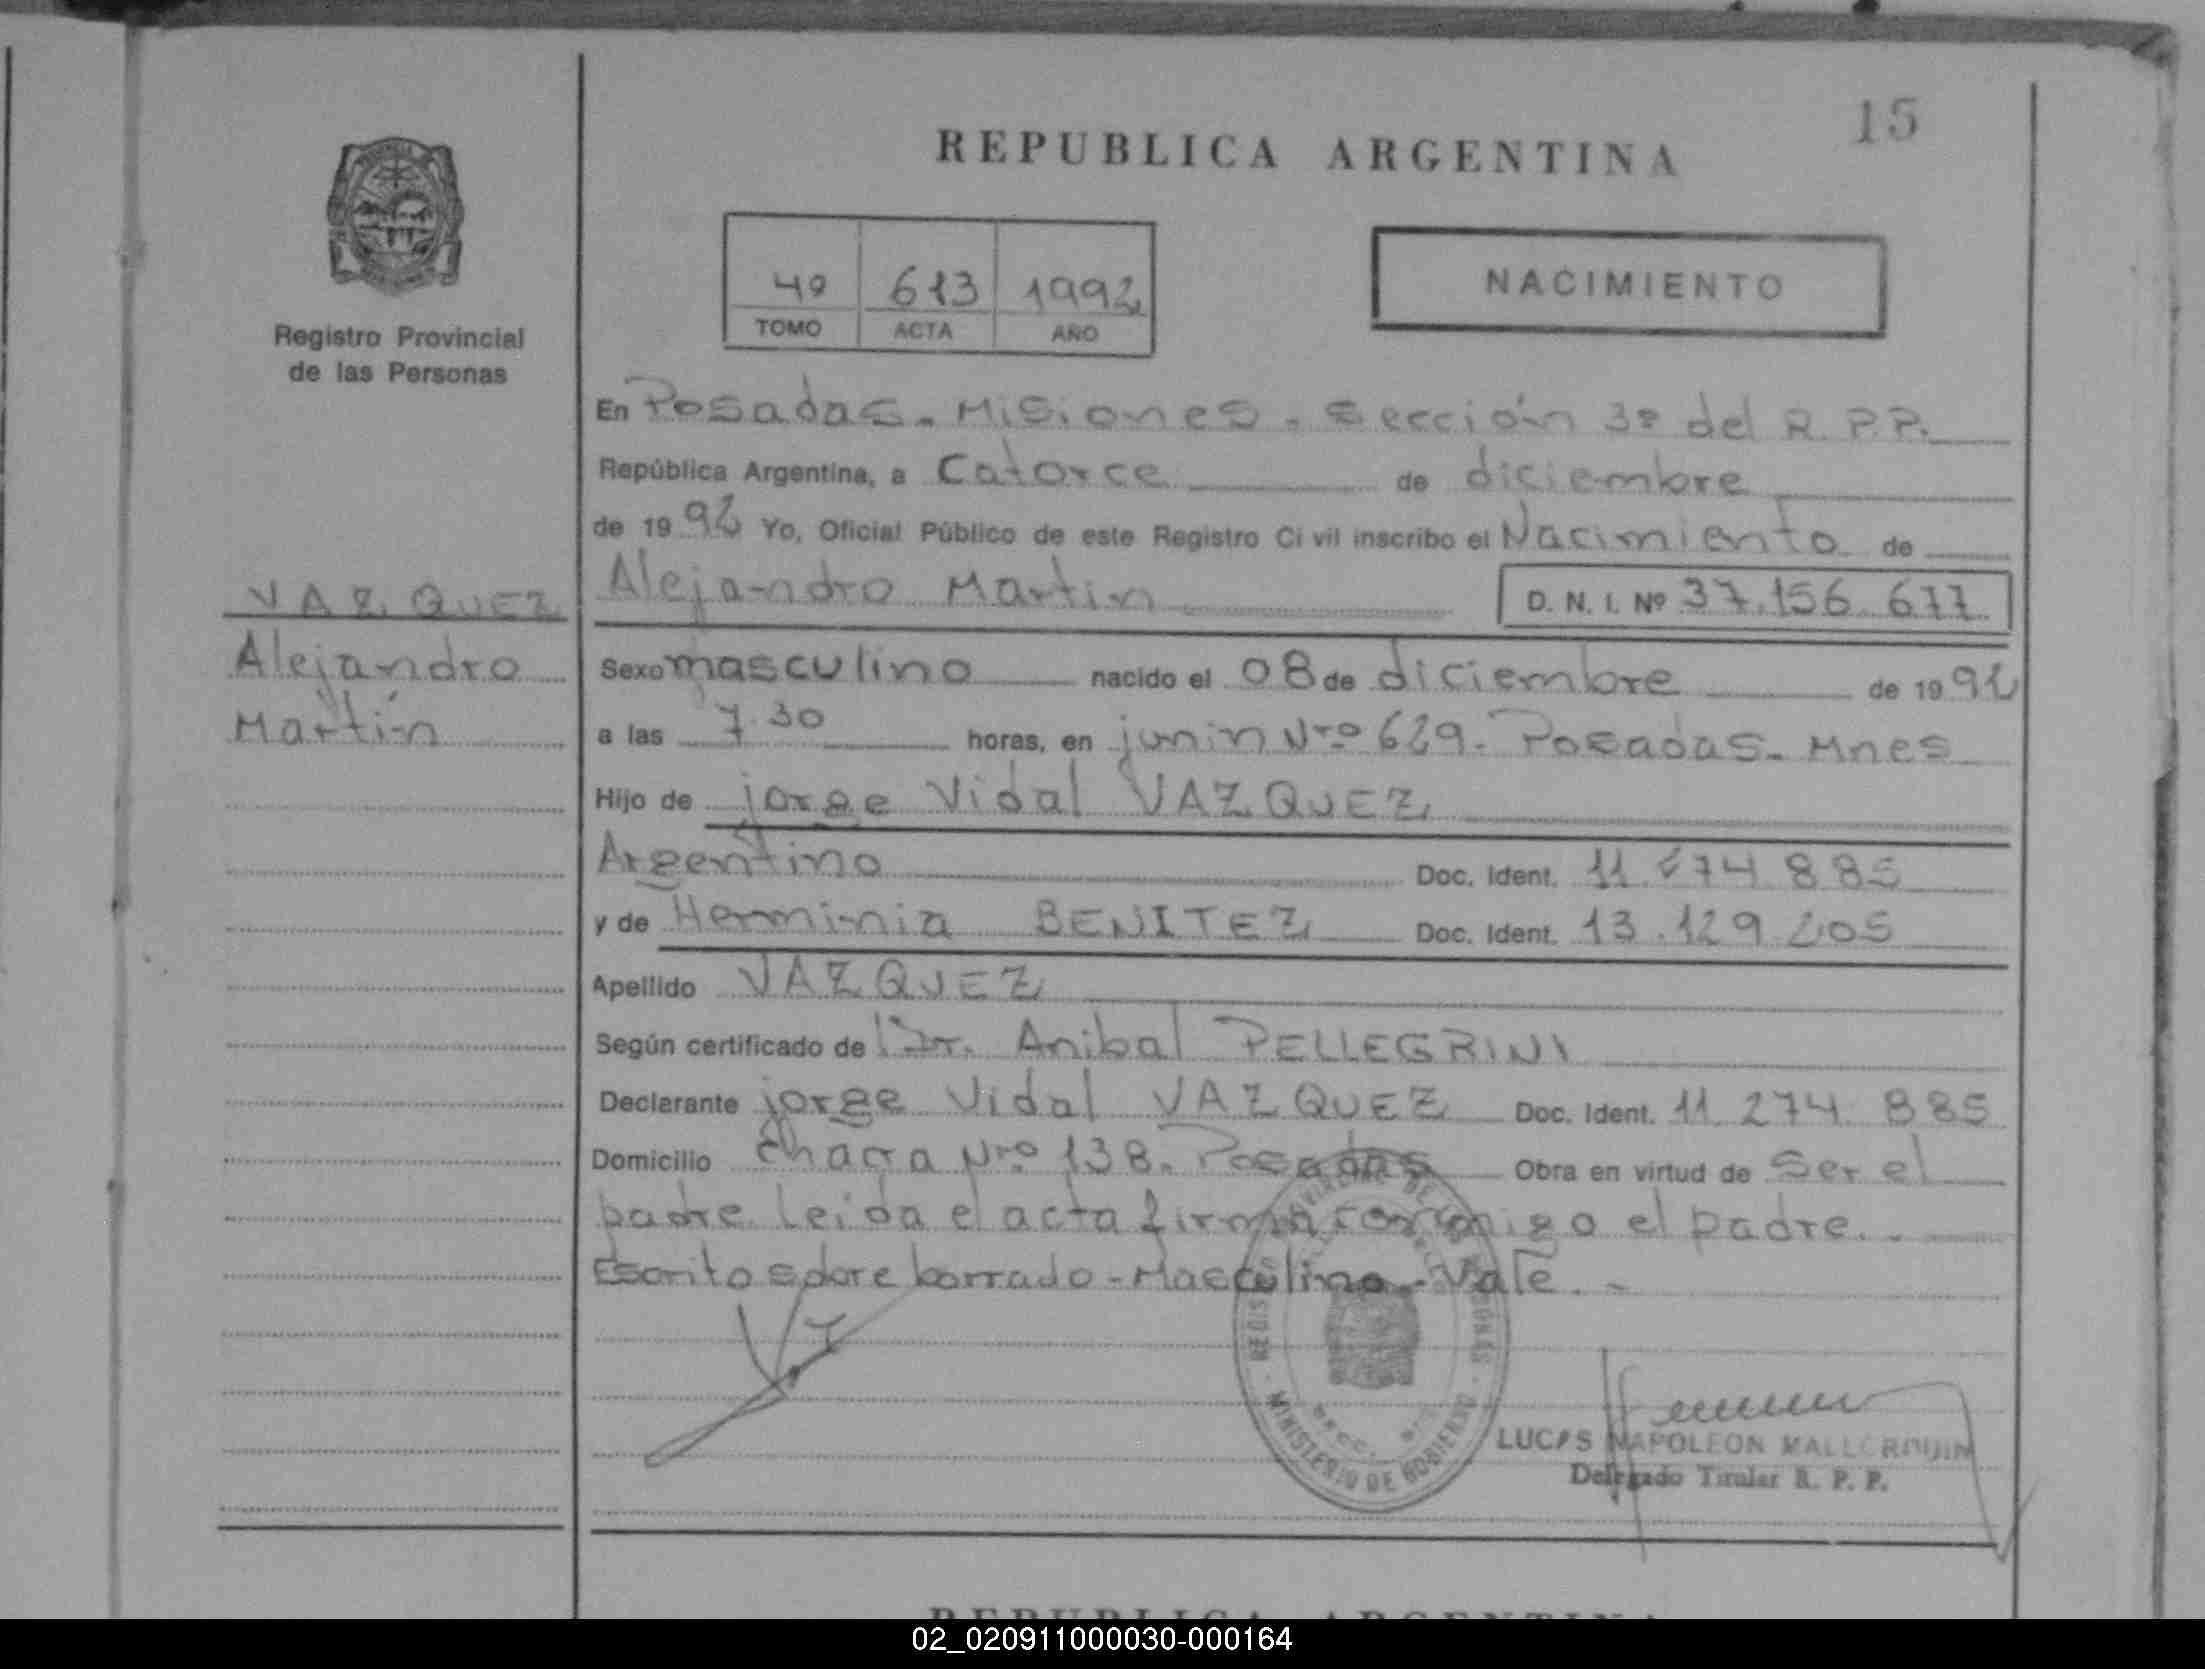 15
REPUBLICA ARGENTINA
Registro Provincial
de las Personas
4º 613 1992
TOMO ACTA AÑO
NACIMIENTO
En Posadas - Misiones - Sección 3ª del R.P.P.
República Argentina, a Catorce de diciembre
de 1992 Yo, Oficial Público de este Registro Civil inscribo el Nacimiento de
Alejandro Martin D. N. I. Nº 37.156.677
VAZQUEZ
Alejandro
Martín
Sexo masculino nacido el 08 de diciembre de 1992
a las 7.30 horas, en junin Nro 629. Posadas - Mnes
Hijo de jorge Vidal VAZQUEZ
Argentino Doc. Ident. 11.274.885
y de Herminia BENITEZ Doc. Ident. 13.129.205
Apellido VAZQUEZ
Según certificado de Dr. Anibal PELLEGRINI
Declarante jorge Vidal VAZQUEZ Doc. Ident. 11.274.885
Domicilio Chacra Nro 138. Posadas Obra en virtud de Ser el
padre. Leida el acta firma conmigo el padre. -
Escrito sobre borrado - Masculino - Vale. -
MINISTERIO DE GOBIERNO
LUCAS NAPOLEON MALLORQUIN
Delegado Titular R. P. P.
REPUBLICA ARGENTINA
02_020911000030-000164